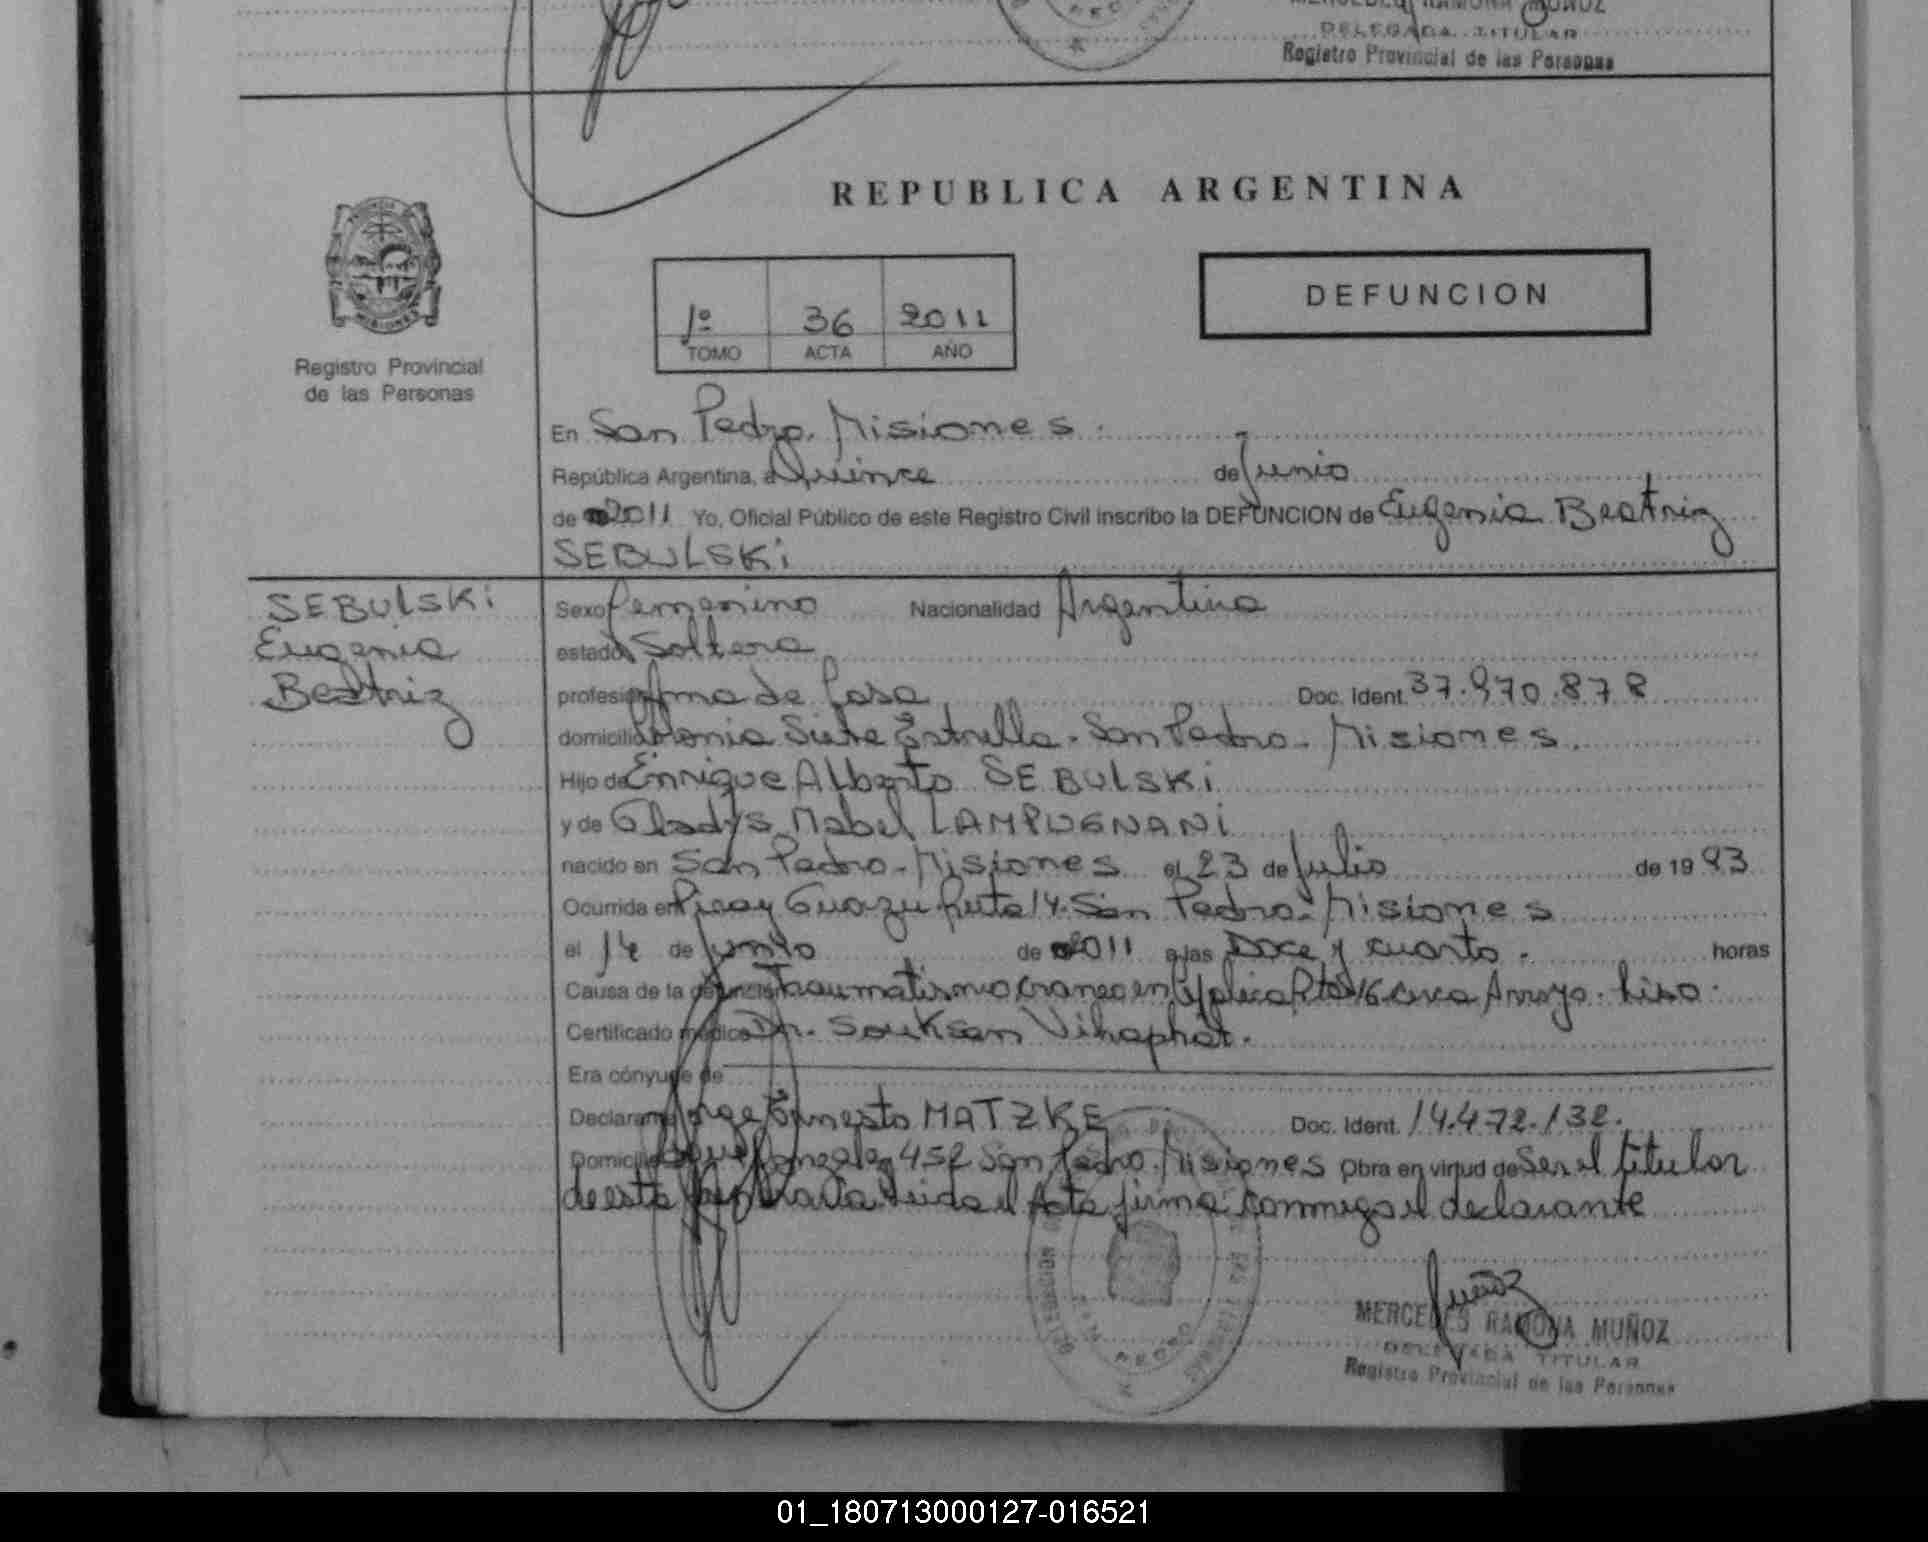 MERCEDES RAMONA MUÑOZ
DELEGADA TITULAR
Registro Provincial de las Personas
REPUBLICA ARGENTINA
DEFUNCION
1º 36 2011
TOMO ACTA AÑO
Registro Provincial
de las Personas
En San Pedro. Misiones.
República Argentina, a Quince de Junio
de 2011 Yo, Oficial Público de este Registro Civil inscribo la DEFUNCION de Eugenia Beatriz
SEBULSKi
SEBULSKi
Eugenia
Beatriz
Sexo femenino Nacionalidad Argentina
estado Soltera
profesión Ama de Casa Doc. Ident. 37.970.878
domicilio Colonia Siete Estrella - San Pedro - Misiones.
Hijo de Enrique Alberto SEBULSKi
y de Gladys Mabel LAMPUGNANi
nacido en San Pedro - Misiones el 23 de Julio de 19 93
Ocurrida en Piray Guazu Ruta 14. San Pedro - Misiones
el 14 de Junio de 2011 a las Doce y cuarto. horas
Causa de la defunción Traumatismo Craneo en 16 cerca Arroyo Liso.
Certificado médico Dr. Souksan Vihaphat.
Era cónyuge de
Declarante Jorge Ernesto MATZKE Doc. Ident. 14.472.132.
Domicilio 452 San Pedro. Misiones Obra en virtud de Ser el titular
de esta Leida el Acta firma conmigo el declarante
MERCEDES RAMONA MUÑOZ
DELEGADA TITULAR
Registro Provincial de las Personas
01_180713000127-016521